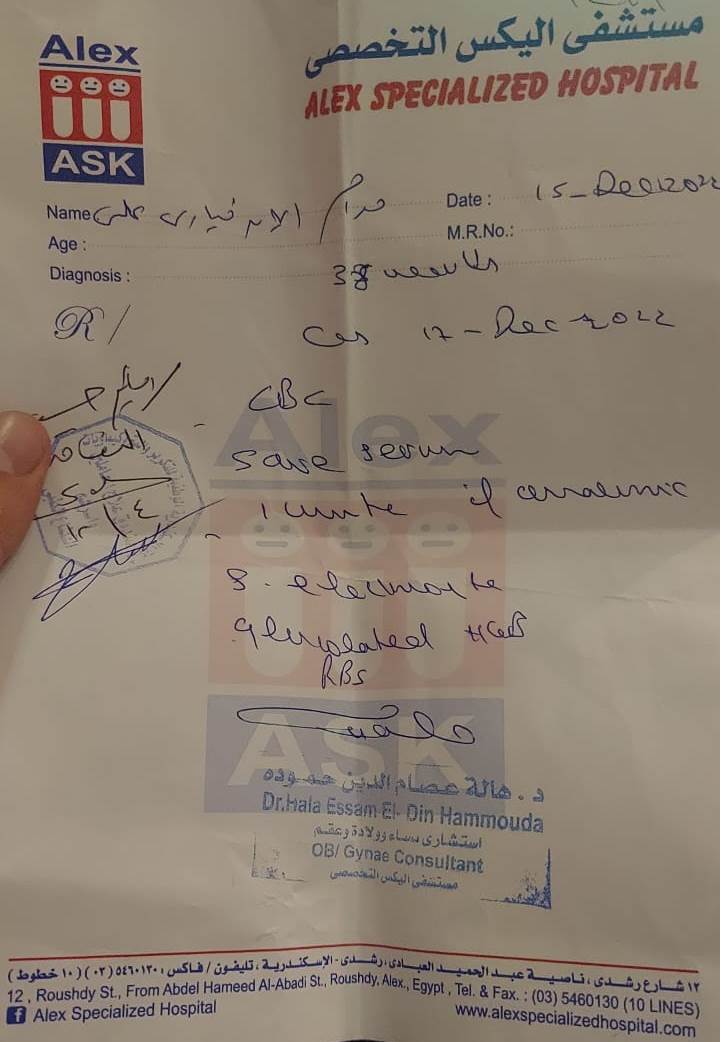 Alex
ASK
مستشفى اليكس التخصصى
ALEX SPECIALIZED HOSPITAL
Name مدام على
Date : 15-Dec 2022
Age :
M.R.No.:
Diagnosis : 38 weeks
R/
CS 17-Dec-2022
CBC
Save serum
1 unite if
S. electrolyte
Glucolated HGB
RBS
Alex
ASK
د. هالة عصام الدين حموده
Dr.Hala Essam El- Din Hammouda
استشارى نساء وولادة وعقم
OB/ Gynae Consultant
مستشفى اليكس التخصصى
١٢ شارع رشدى ، ناصية عبد الحميد العبادى، رشدى - الإسكندرية ، تليفون / فاكس : ٥٤٦٠١٣٠ (٠٣) ( ١٠ خطوط )
12 , Roushdy St., From Abdel Hameed Al-Abadi St., Roushdy, Alex., Egypt , Tel. & Fax. : (03) 5460130 (10 LINES)
Alex Specialized Hospital
www.alexspecializedhospital.com